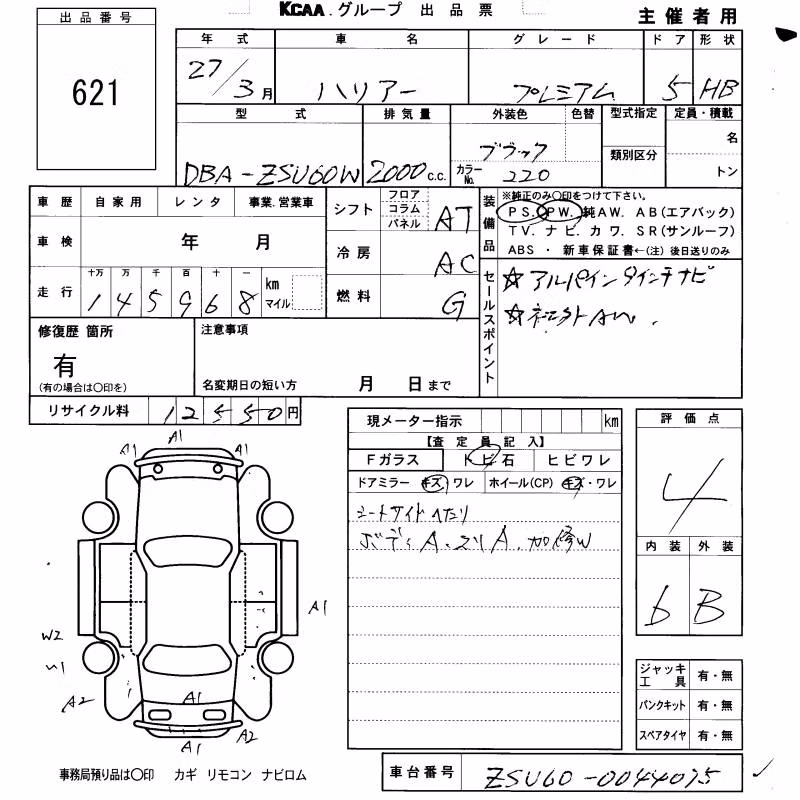 KCAA.グループ 出品票
主催者用
出品番号
621
年式 車名 グレード ドア 形状
27/3月 ハリアー プレミアム 5 HB
型式 排気量 外装色 色替 型式指定 定員・積載
DBA-ZSU60W 2000c.c. ブラック 名
カラーNo. 220 類別区分 トン
車歴 自家用 レンタ 事業.営業車
車検 年 月
走行 十万 万 千 百 十 一
145968 km マイル
シフト フロア コラム パネル AT
冷房 AC
燃料 G
装備品
※純正のみ○印をつけて下さい。
PS. PW. 純AW. AB(エアバック)
TV. ナビ. カワ. SR(サンルーフ)
ABS ・ 新車保証書←(注) 後日送りのみ
セールスポイント
☆アルパイン 9インチナビ
☆社外AW.
修復歴 箇所
有
(有の場合は○印を)
注意事項
名変期日の短い方 月 日まで
リサイクル料 12550円
現メーター指示 km
【査定員記入】
Fガラス トビ石 ヒビワレ
ドアミラー キズ・ワレ ホイール(CP) キズ・ワレ
シートサイド へたり
ボディA・スリA.加修W
評価点
4
内装 外装
6 B
A1 A1 A1
A1
W2
A2 A1 A2
A1
ジャッキ工具 有・無
パンクキット 有・無
スペアタイヤ 有・無
事務局預り品は○印 カギ リモコン ナビロム
車台番号 ZSU60-0044075